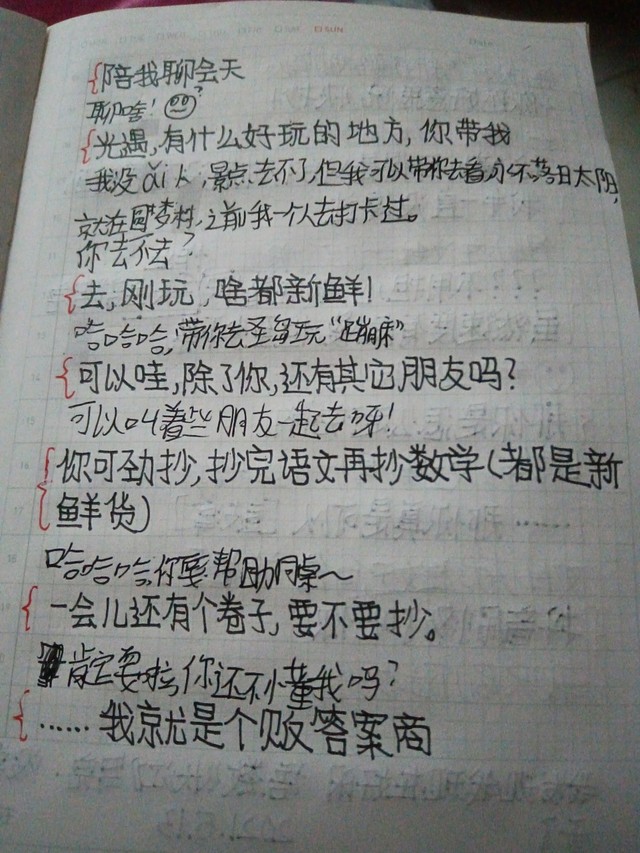 陪我聊会天
聊啥!
光遇,有什么好玩的地方,你带我
我没ǎi人,景点去不了,但我可以带你去看永不落日太阳,
就在圆梦村,之前我一个人去打卡过。
你去不去?
去,刚玩,啥都新鲜!
哈哈哈,带你去圣岛玩“蹦床”
可以哇,除了你,还有其它朋友吗?
可以叫着些朋友一起去呀!
你可劲抄,抄完语文再抄数学(都是新
鲜货)
哈哈哈,你要帮助同桌~
一会儿还有个卷子,要不要抄。
肯定要啦,你还不懂我吗?
……我就是个贩答案商